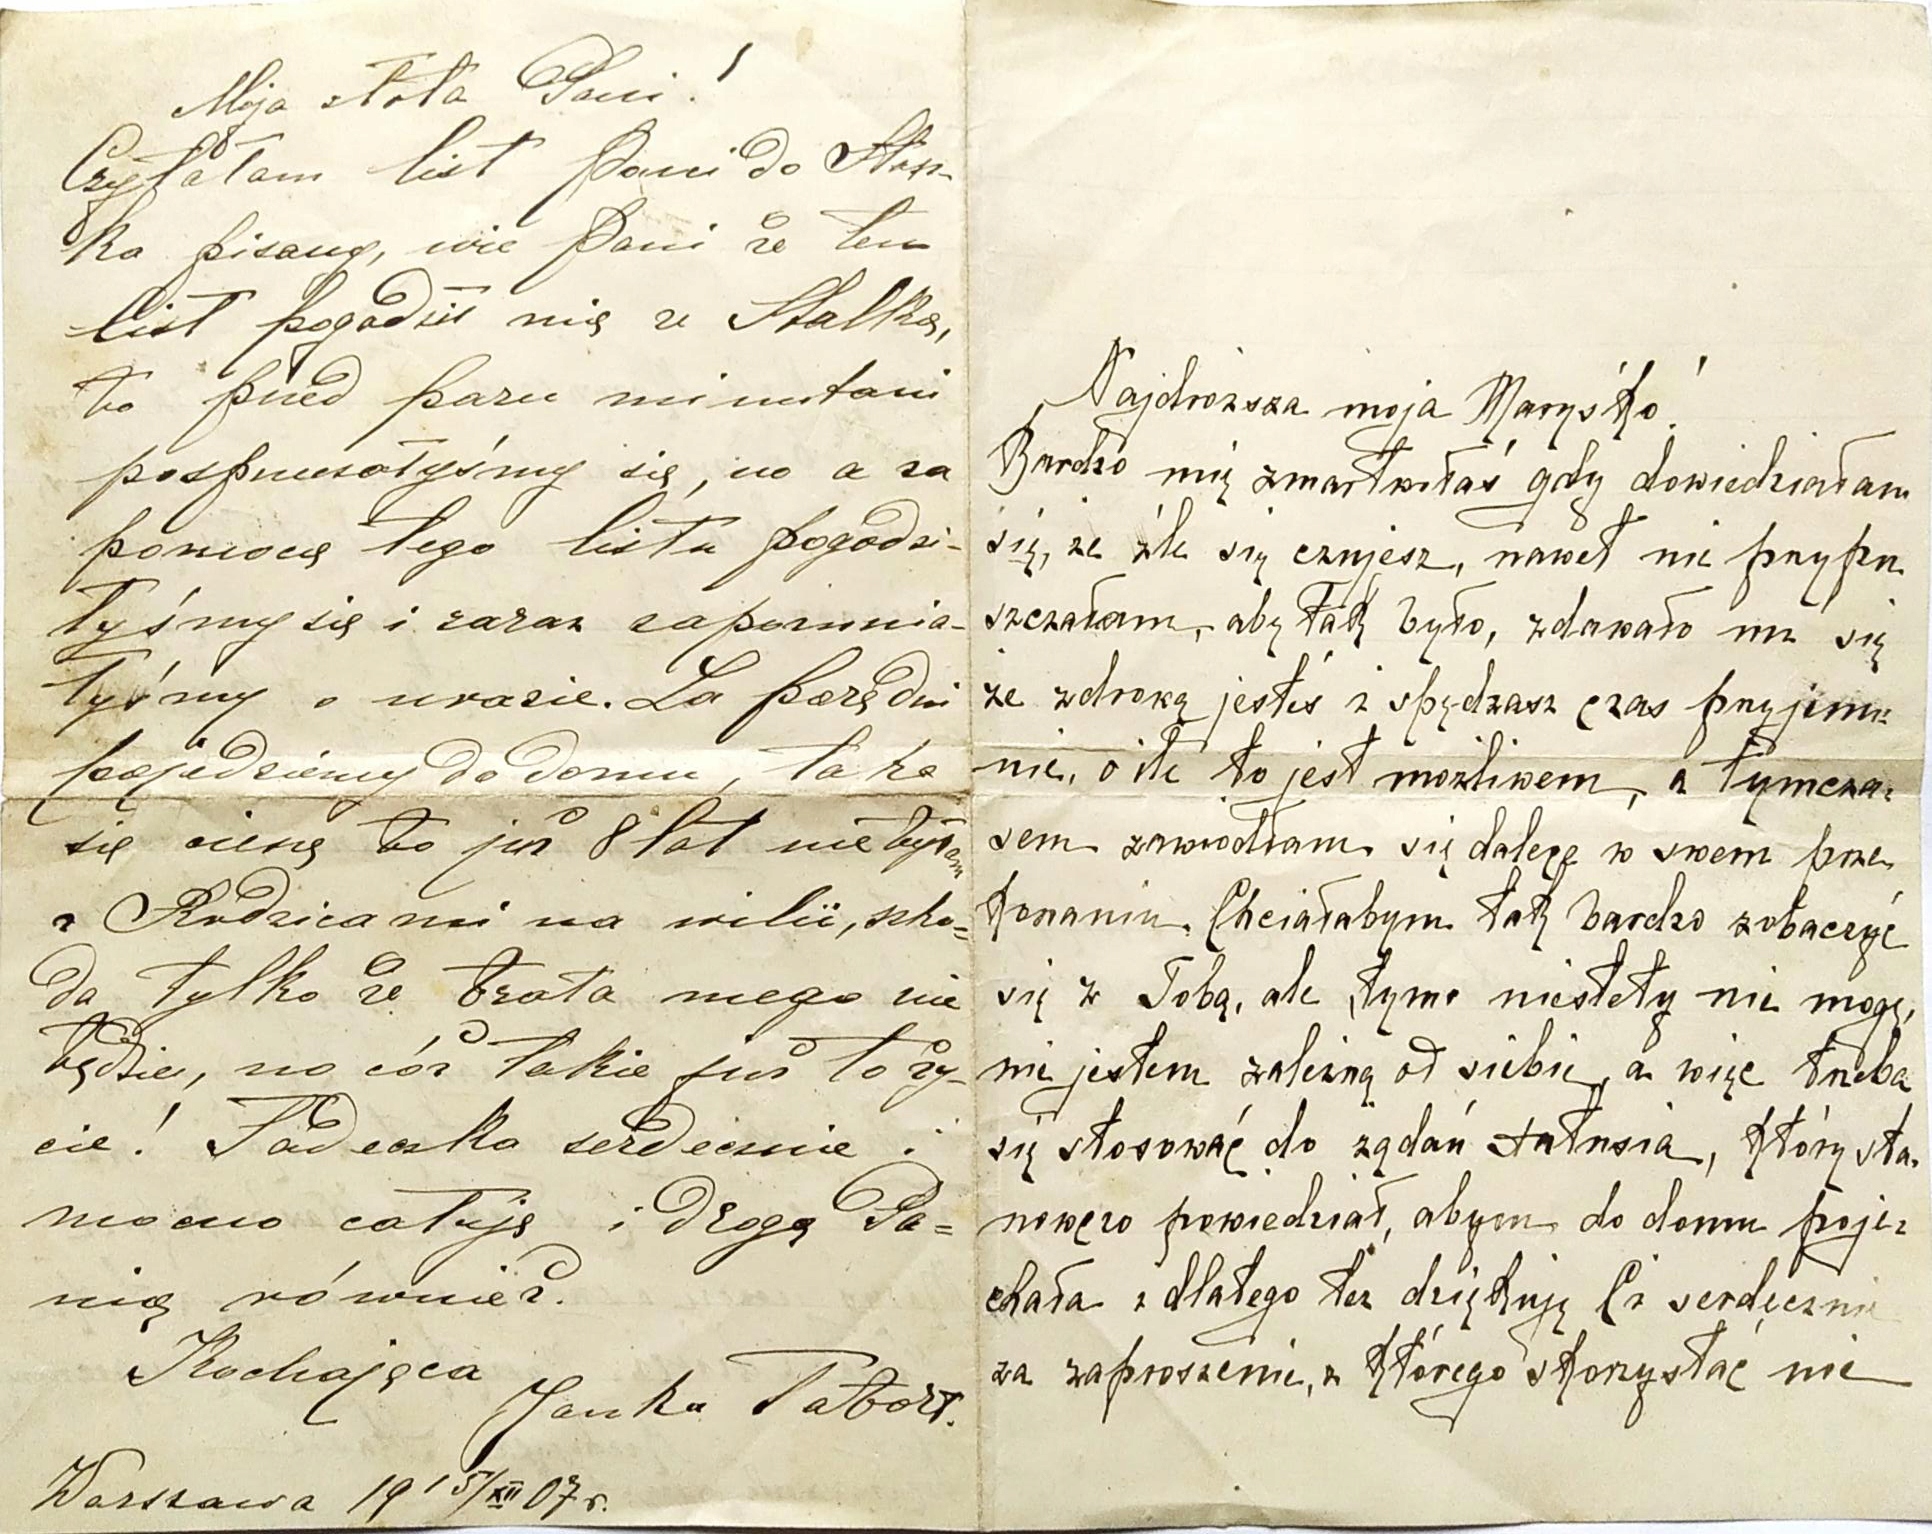 Moja złota Pani!
Czytałam list Pani do Stas-
ka pisany, wie Pani że ten
list pogodził mię ze Stalką,
bo przed paru minutami
posprzeczałyśmy się, no a za
pomocą tego listu pogodzi-
łyśmy się i zaraz zapomnia-
łyśmy o urazie. Za parę dni
pojedziemy do domu, tak
się cieszę bo już 8 lat nie byłam
z Rodzicami na wilii, szko=
da tylko że brata mego nie
będzie, no cóż takie już to ży-
cie! Tadeczka serdecznie i
mocno całuję i drogą Pa=
nią również.
Kochająca
Janka Tabort.
Warszawa 19 15/XII 07 r.
Najdroższa moja Maryśko!
Bardzo mię zmartwiłaś gdy dowiedziałam
się, że źle się czujesz, nawet nie przypu
szczałam, aby tak było, zdawało mi się
że zdrową jesteś i spędzasz czas przyjem=
nie, o ile to jest możliwem, a tymcza=
sem zawiodłam się dalece w swem prze
konaniu. Chciałabym tak bardzo zobaczyć
się z Tobą, ale niestety nie mogę,
nie jestem zależną od siebie, a więc trzeba
się stosować do żądań tatusia, który sta=
nowczo powiedział, abym do domu poje=
chała i dlatego też dziękuję Ci serdecznie
za zaproszenie, z którego skorzystać nie